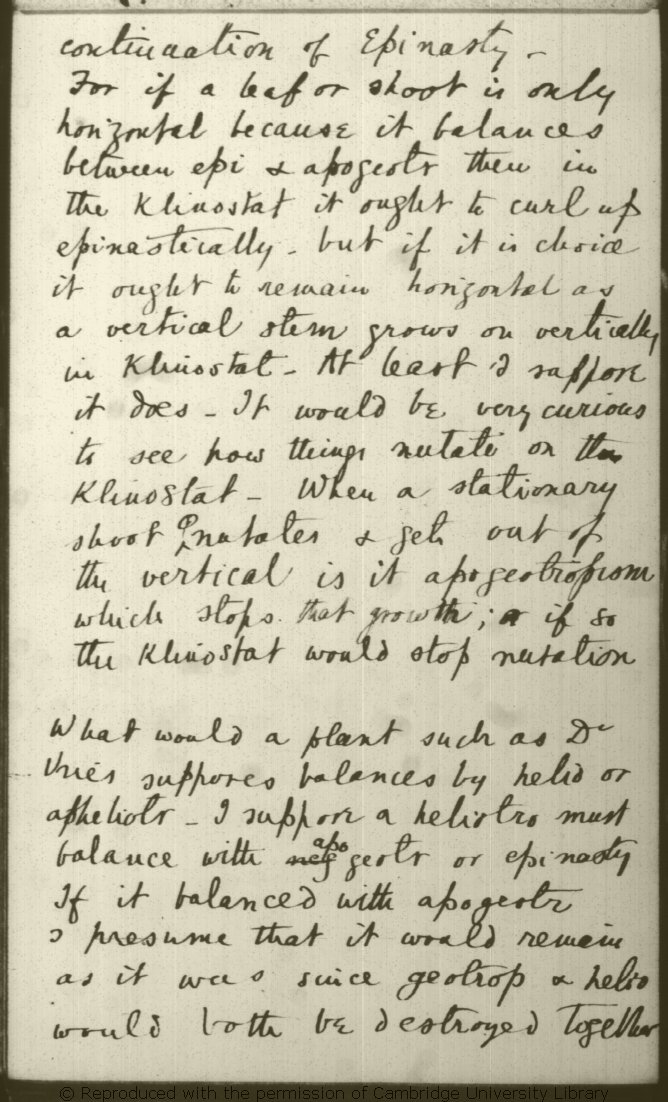 continuation of Epinasty –
For if a leaf or shoot is only
horizontal because it balances
between epi & apogeotr then in
the Klinostat it ought to curl up
epinastically – but if it is choice
it ought to remain horizontal as
a vertical stem grows on vertically
in Klinostat – At least I suppose
it does – It would be very curious
to see how things nutate on the
Klinostat – When a stationary
shoot nutates & gets out of
the vertical is it apogeotropism
which stops that growth; if so
the Klinostat would stop nutation
What would a plant such as De
Vries supposes balances by helio or
apheliotr – I suppose a heliotro must
balance with neg apo geotr or epinasty
If it balanced with apogeotr
I presume that it would remain
as it was since geotrop & helio
would both be destroyed together
© Reproduced with the permission of Cambridge University Library